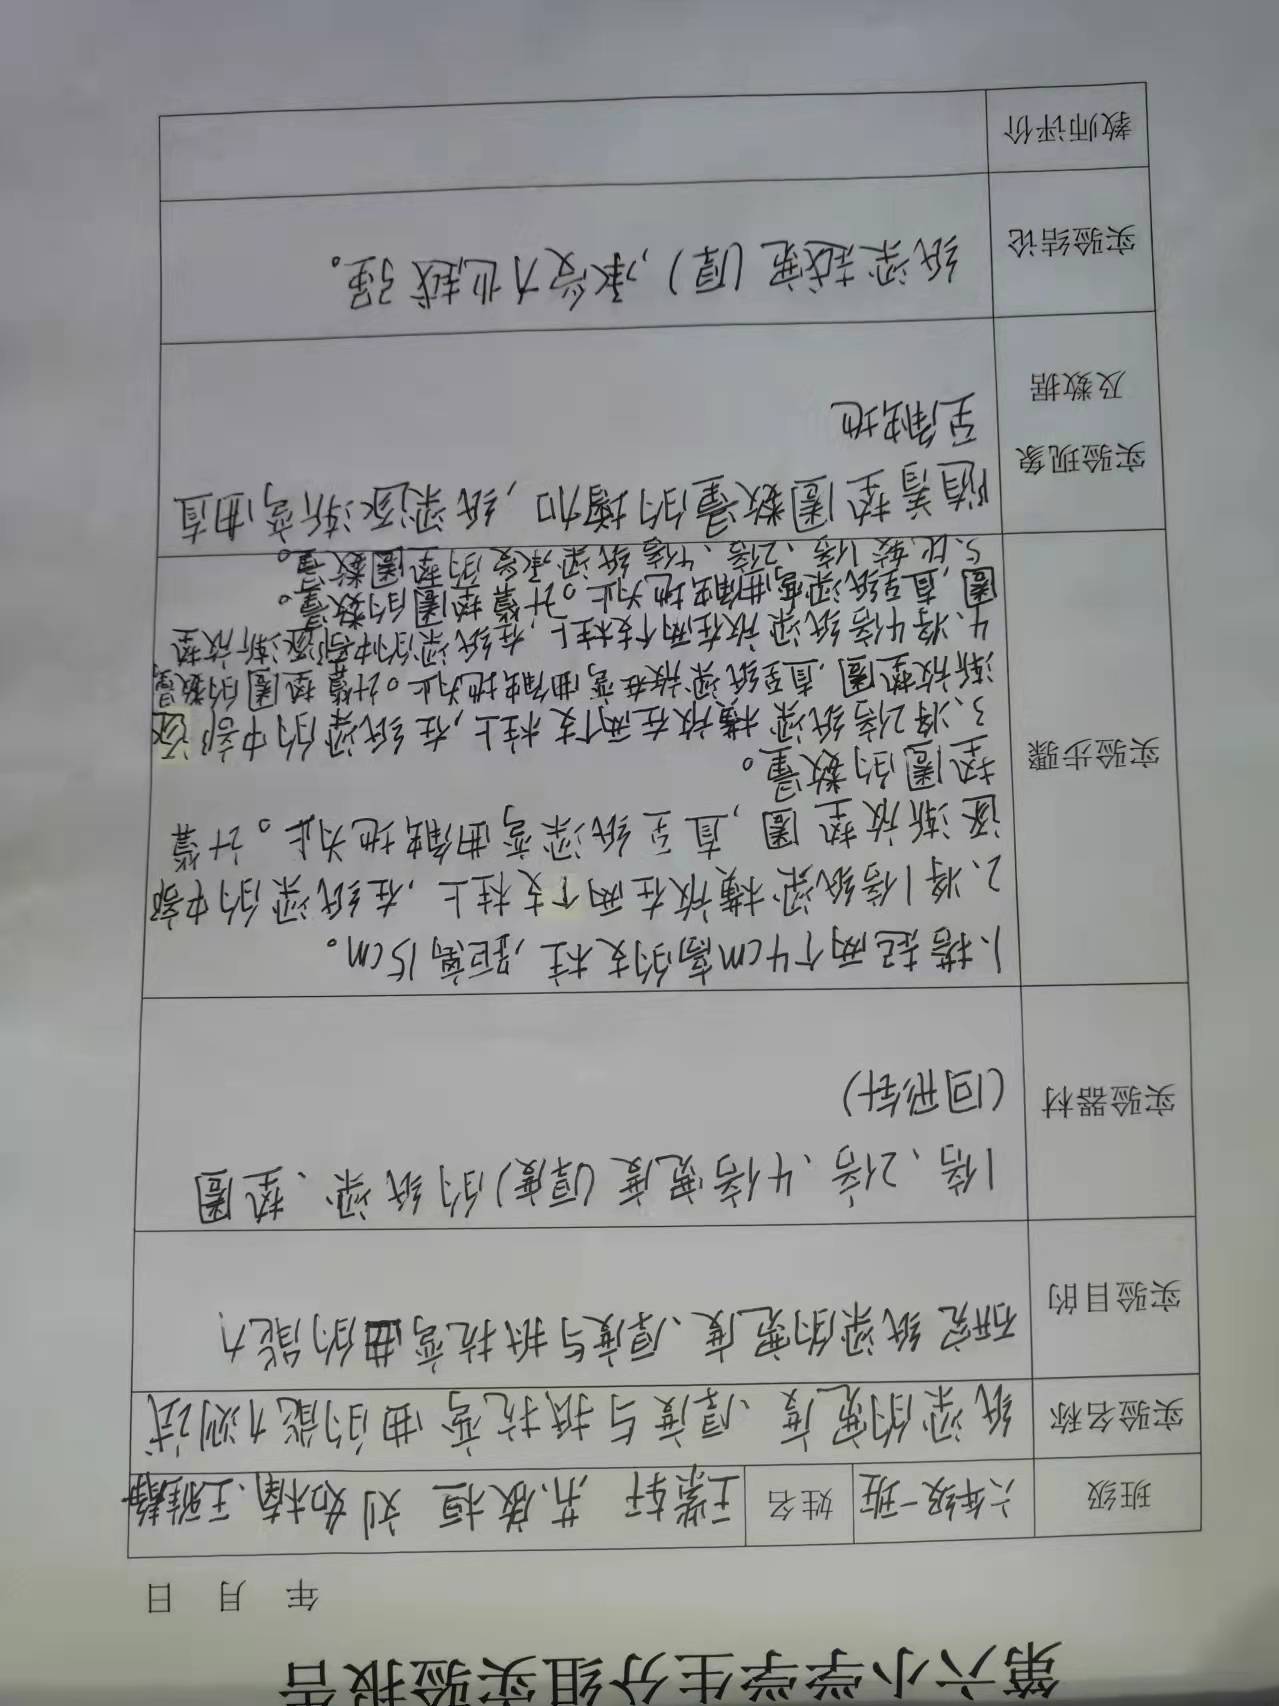 第六小学学生分组实验报告
年 月 日
班级 六年级一班 姓名 王紫轩 苏欣桓 刘如楠、王雅静
实验名称 纸梁的宽度、厚度与抵抗弯曲的能力测试
实验目的 研究纸梁的宽度、厚度与抵抗弯曲的能力
实验器材 1倍、2倍、4倍宽度(厚度)的纸梁、垫圈
(回形针)
实验步骤
1.搭起两个4cm高的支柱,距离15cm。
2.将1倍纸梁横放在两个支柱上,在纸梁的中部
逐渐放垫圈,直至纸梁弯曲触地为止。计算
垫圈的数量。
3、将2倍纸梁横放在两个支柱上,在纸梁的中部逐
渐放垫圈,直至纸梁放在弯曲触地为止。计算垫圈的数量
4、将4倍纸梁放在两个支柱上,在纸梁的中部逐渐放垫
圈,直至纸梁弯曲触地为止。计算垫圈的数量。
5、比较1倍、2倍、4倍纸梁承受的垫圈数量。
实验现象
及数据
随着垫圈数量的增加,纸梁逐渐弯曲直
至触地
实验结论 纸梁越宽(厚),承受力也越强。
教师评价